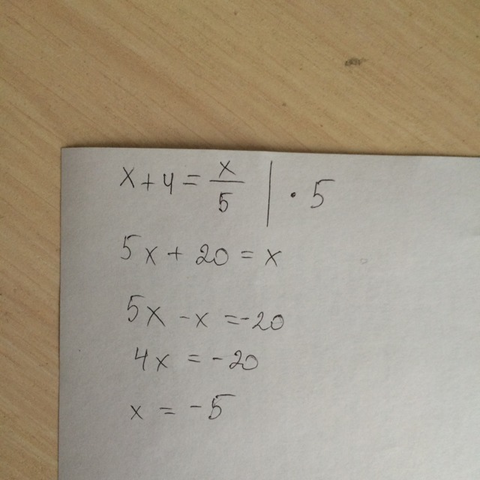 x+4=x/5 | · 5
5x+20=x
5x-x=-20
4x=-20
x=-5